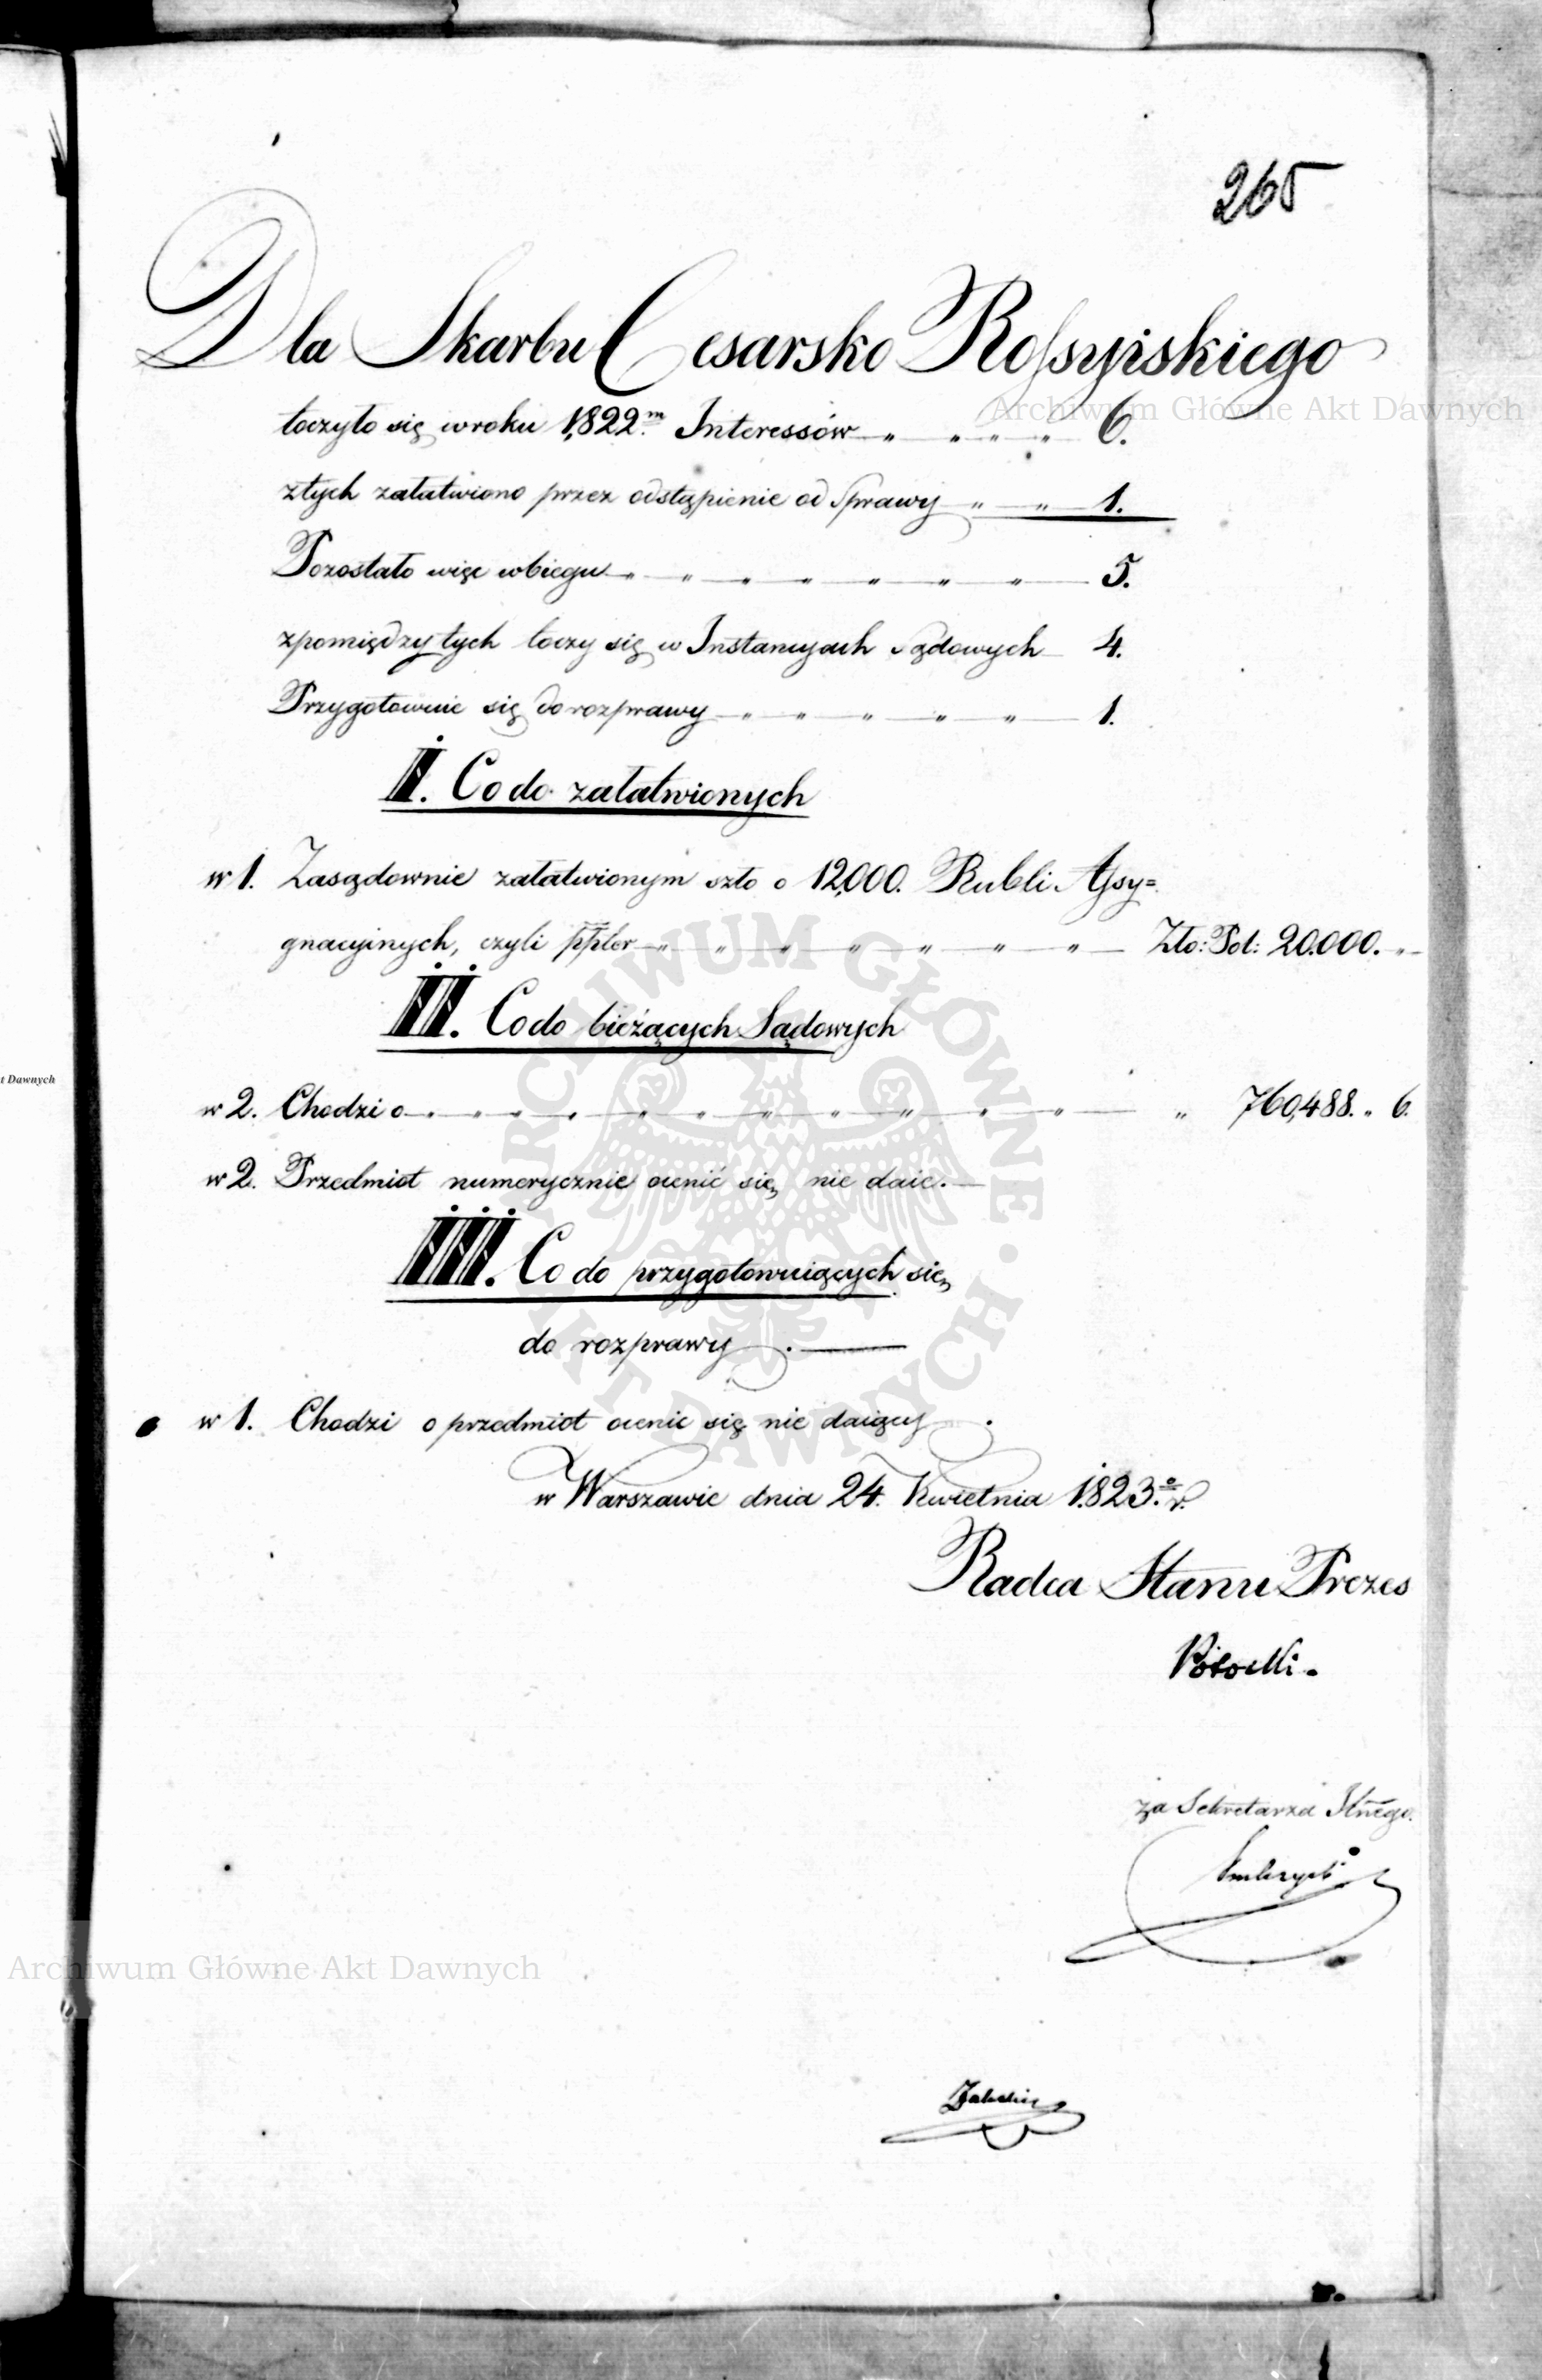 265
Dla Skarbu Cesarsko Rossyiskiego
toczyło się w roku 1822.m Interessów 6.
z tych załatwiono przez odstąpienie od Sprawy 1.
Pozostało więc w biegu 5.
z pomiędzy tych toczy się w Instancyach Sądowych 4.
Przygotowuie się do rozprawy 1.
I. Co do załatwionych
w 1. Zasądownie załatwionym szło o 12,000. Rubli Assy=
gnacyinych, czyli Zło: Pol: 20.000. „
II. Co do bieżących Sądowych
w 2. Chodzi o „ 760,488. „ 6.
w 2. Przedmiot numerycznie ocenić się nie daie.
III. Co do przygotowuiących się
do rozprawy.
w 1. Chodzi o przedmiot ocenić się nie daiący.
w Warszawie dnia 24. Kwietnia 1823.o r.
Radca Stanu Prezes
za Sekretarza Jlnego.
Archiwum Główne Akt Dawnych
ARCHIWUM GŁÓWNE AKT DAWNYCH
t Dawnych
Archiwum Główne Akt Dawnych